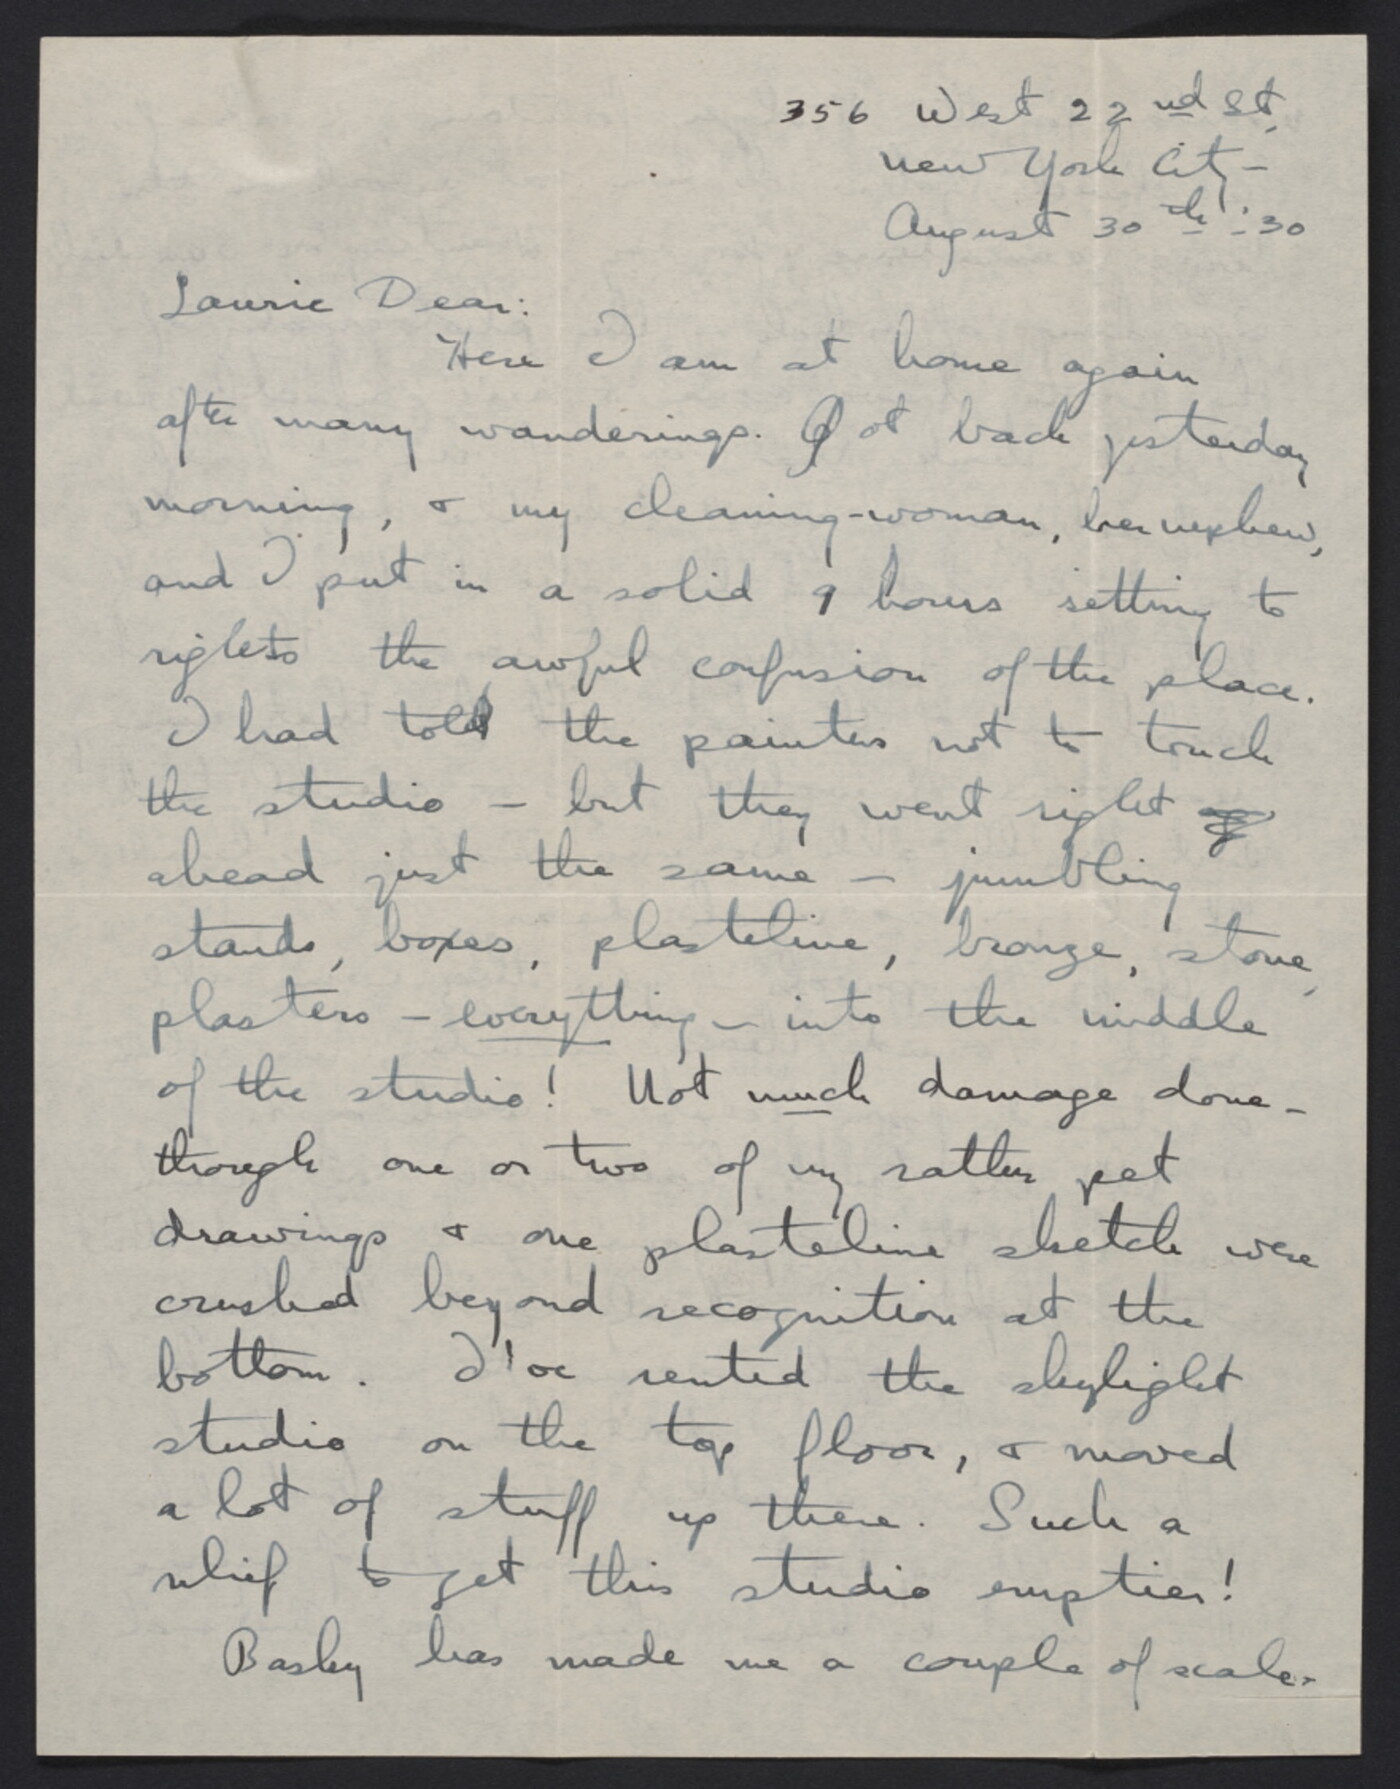 356 West 22nd St,
New York City –
August 30th '30
Laurie Dear:
Here I am at home again
after many wanderings. Got back yesterday
morning, & my cleaning-woman, her nephew,
and I put in a solid 9 hours setting to
rights the awful confusion of the place.
I had told the painters not to touch
the studio – but they went right
ahead just the same – jumbling
stands, boxes, plasteline, bronze, stone,
plasters – everything – into the middle
of the studio! Not much damage done –
though one or two of my rather pet
drawings & one plasteline sketch were
crushed beyond recognition at the
bottom. I've rented the skylight
studio on the top floor, & moved
a lot of stuff up there. Such a
relief to get this studio emptier!
Basky has made me a couple of scale-